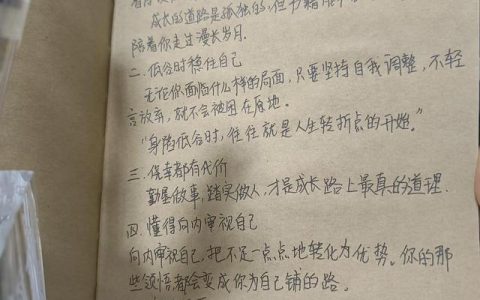 成长的道路是孤独的,但书籍能
陪着你走过漫长岁月.
二.低谷时稳住自己
无论你面临什么样的局面,只要坚持自我调整,不轻
言放弃,就不会被困在原地.
“身陷低谷时,往往就是人生转折点的开始。”
三.侥幸都有代价
勤恳做事,踏实做人,才是成长路上最真的道理.
四.懂得向内审视自己
向内审视自己,把不足一点点地转化为优势。你的那
些领悟都会变成你为自己铺的路。